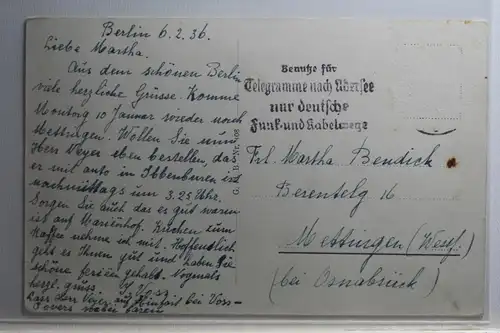 Berlin 6.2.36.
Liebe Martha.
Aus dem schönen Berlin
viele herzliche Grüsse. Komme
Montag 10 Januar wieder nach
Mettingen. Wollen Sie
Herr Veyer eben bestellen, das
er mit auto in Ibbenburen ist
nachmittags um 3.25 Uhr.
Sorgen Sie auch das es gut warm
ist auf Kuchen zum
Kaffee nehme ich mit. Hoffentlich
geht es Ihnen gut und haben Sie
schöne ferien gehabt. Nogmals
herzl. gruss
Herr Veyer bei Voss
G. J. B. No.
Benutze für
Telegramme nach Übersee
nur deutsche
Funk- und Kabelwege
Frl. Martha Bendick
Berentelg 16
Mettingen (Westf.)
(bei Osnabrück)